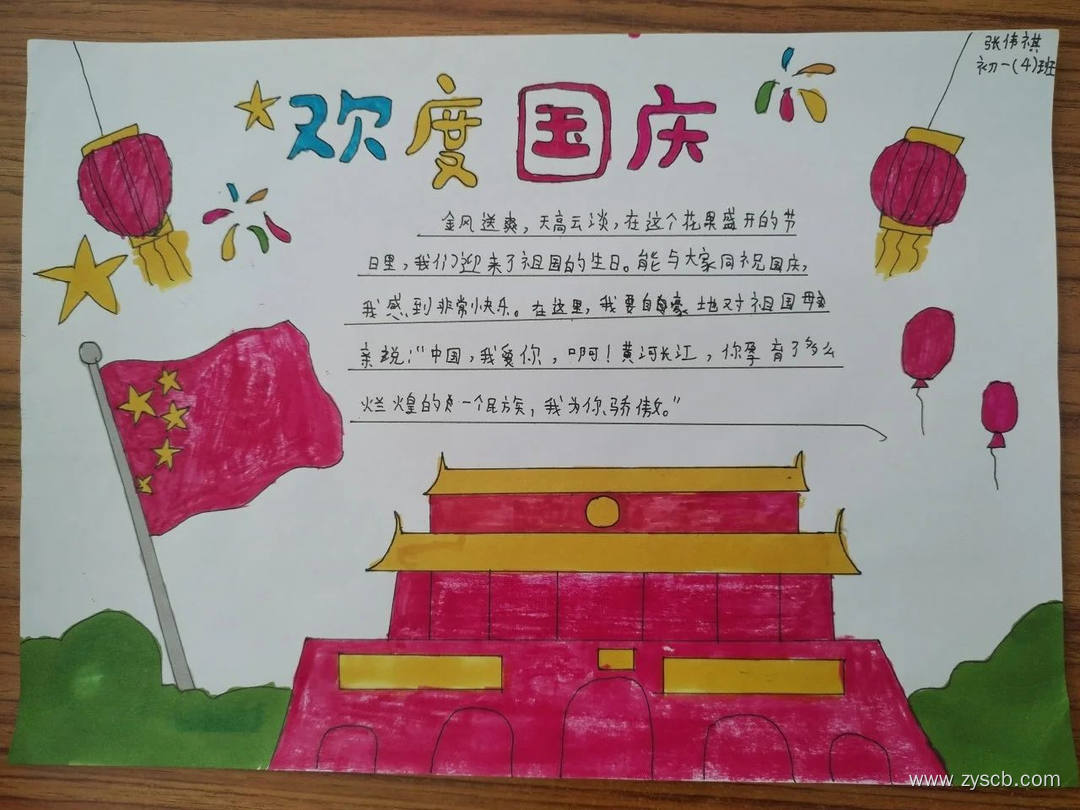 张伟祺
初一(4)班
欢度国庆
金风送爽，天高云淡，在这个花果盛开的节
日里，我们迎来了祖国的生日。能与大家同祝国庆，
我感到非常快乐。在这里，我要自豪地对祖国母
亲说："中国，我爱你，啊！黄河长江，你孕育了多么
灿煌的一个民族，我为你骄傲。"
www.zyscb.com